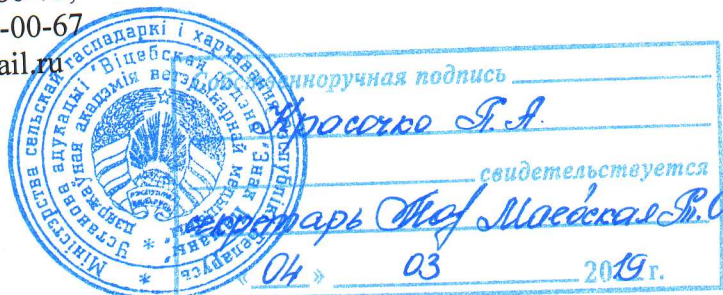 -00-67
ail.ru
Міністэрства сельскай гаспадаркі і харчавання Рэспублікі Беларусь
Установа адукацыі "Віцебская ордэна "Знак Пашаны" дзяржаўная акадэмія ветэрынарнай медыцыны"
Собственноручная подпись
Красочко П.А.
свидетельствуется
секретарь
« 04 » 03 2019 г.